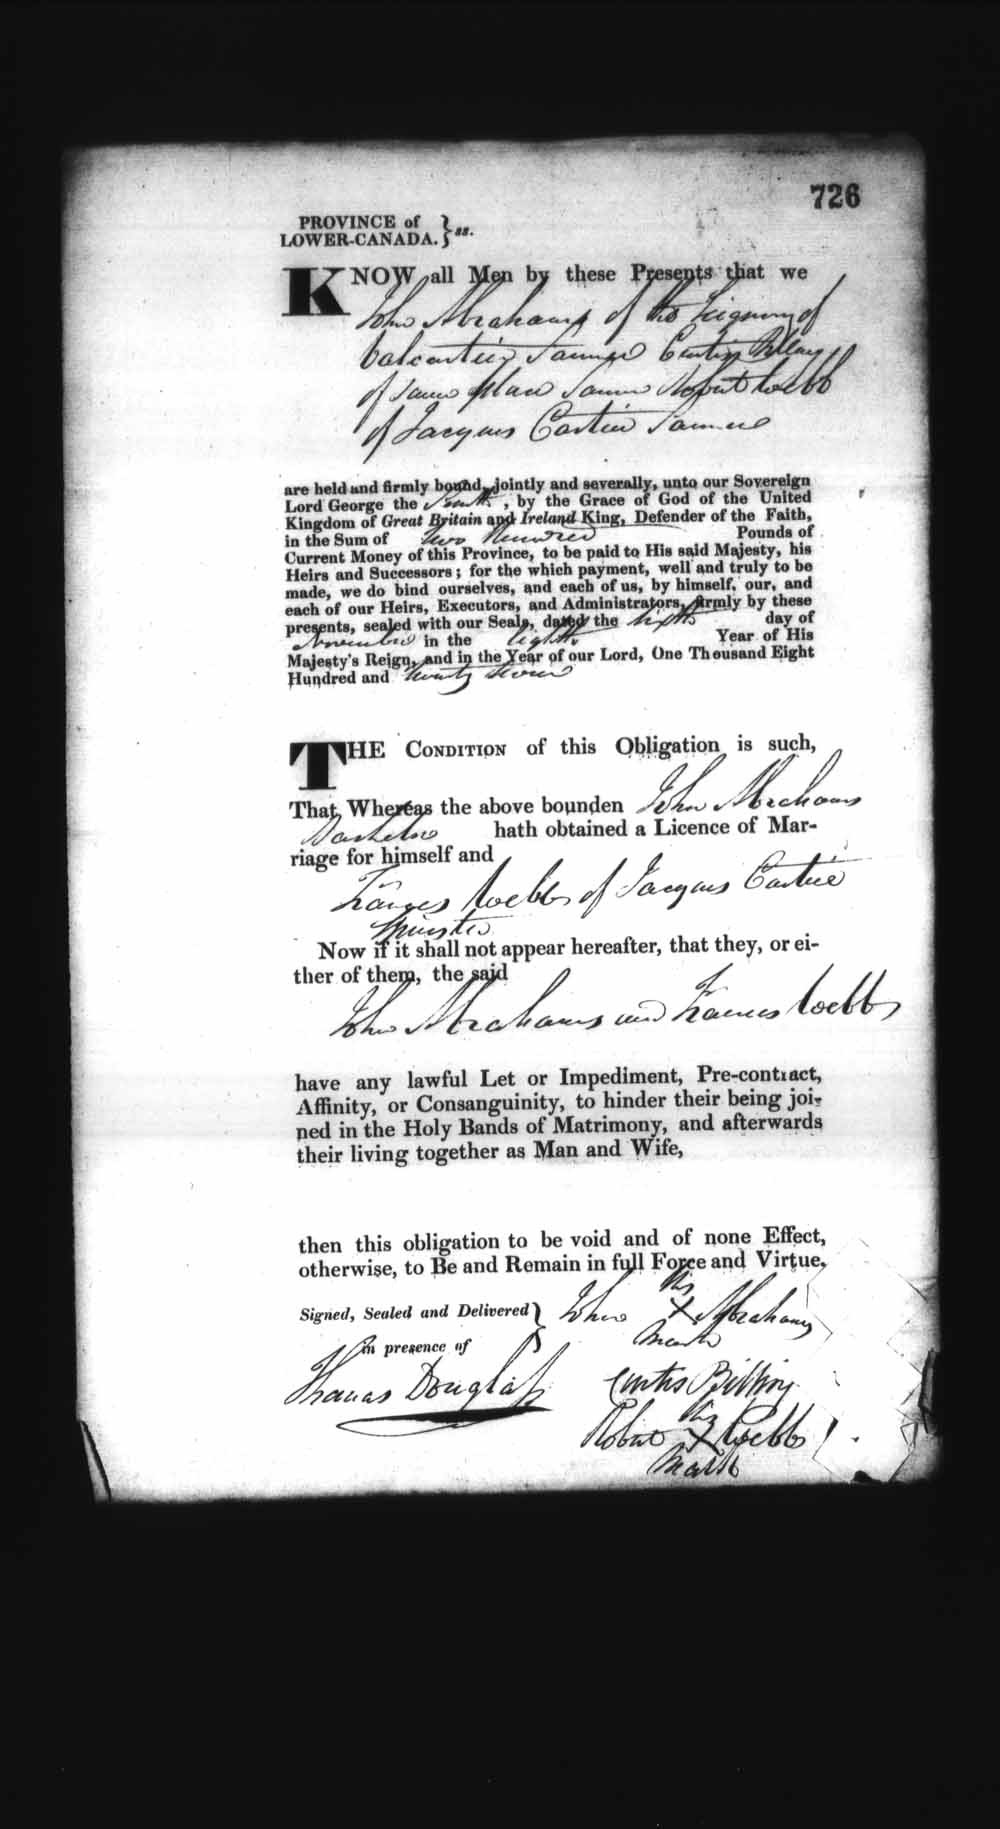 726
PROVINCE of
LOWER-CANADA. } ss.
KNOW all Men by these Presents that we
John Abrahams of the Seignory of
Valcartier Farmer Curtis Billing
of same place Farmer Robert Webb
of Jacques Cartier Farmer
are held and firmly bound, jointly and severally, unto our Sovereign
Lord George the Fourth, by the Grace of God of the United
Kingdom of Great Britain and Ireland King, Defender of the Faith,
in the Sum of Two Hundred Pounds of
Current Money of this Province, to be paid to His said Majesty, his
Heirs and Successors; for the which payment, well and truly to be
made, we do bind ourselves, and each of us, by himself, our, and
each of our Heirs, Executors, and Administrators, firmly by these
presents, sealed with our Seals, dated the day of
November in the Eighth Year of His
Majesty's Reign, and in the Year of our Lord, One Thousand Eight
Hundred and twenty seven
THE CONDITION of this Obligation is such,
That Whereas the above bounden John Abrahams
Bachelor hath obtained a Licence of Mar-
riage for himself and
Frances Webb of Jacques Cartier
Spinster
Now if it shall not appear hereafter, that they, or ei-
ther of them, the said
John Abrahams and Frances Webb
have any lawful Let or Impediment, Pre-contract,
Affinity, or Consanguinity, to hinder their being joi-
ned in the Holy Bands of Matrimony, and afterwards
their living together as Man and Wife,
then this obligation to be void and of none Effect,
otherwise, to Be and Remain in full Force and Virtue.
his
Signed, Sealed and Delivered } John X Abrahams
mark
in presence of
Thomas Douglass Curtis Billing
his
Robert X Webb
mark